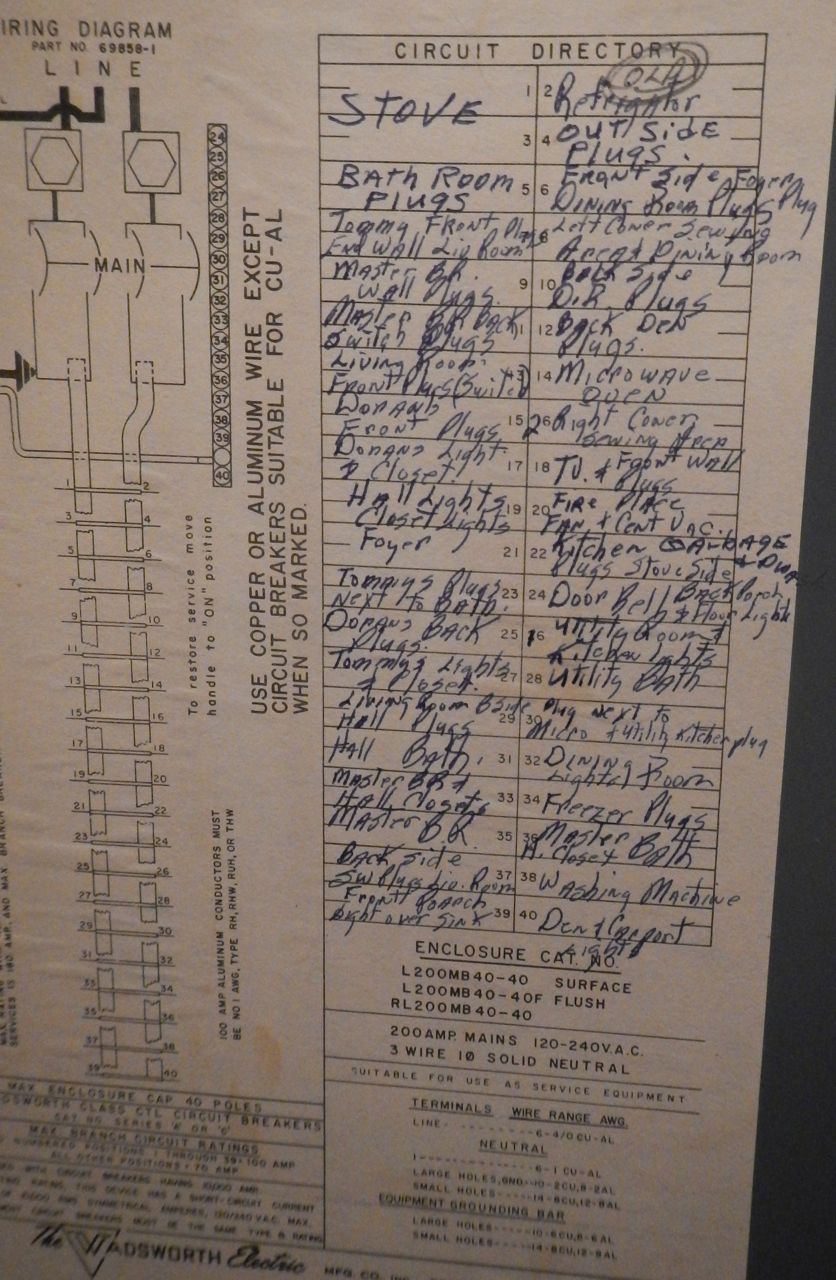 IRING DIAGRAM
PART NO. 69858-1
LINE
MAIN
24
25
26
27
28
29
30
31
32
33
34
35
36
37
38
39
40
USE COPPER OR ALUMINUM WIRE EXCEPT
CIRCUIT BREAKERS SUITABLE FOR CU-AL
WHEN SO MARKED.
To restore service move
handle to "ON" position
100 AMP ALUMINUM CONDUCTORS MUST
BE NO 1 AWG, TYPE RH, RHW, RUH, OR THW
1 2
3 4
5 6
7 8
9 10
11 12
13 14
15 16
17 18
19 20
21 22
23 24
25 26
27 28
29 30
31 32
33 34
35 36
37 38
39 40
CIRCUIT DIRECTORY
OLD
STOVE 1 2 Refrigitor
3 4 OUT Side
Plugs.
Bath Room 5 6 FRONT Side Foyer
Plugs Dining Room Plugs Plug
Tommy Front Plugs 8 Left Coner Sewing
End Wall Liv Room Area & Dining Room
Master BR. 9 10 Back Side
Wall Plugs. D.R. Plugs
Master BR Back 11 12 Back Den
Switch Plugs Plugs.
Living Room 13 14 Microwave
Front Plugs (Switch) oven
Dorans 15 26 Right Coner
Front Plugs, Sewing Area
Dorans Light 17 18 TV. & Front Wall
& Closet. Plugs
Hall Lights 19 20 Fire Place
Closet Lights Fan, & Cent Vac.
Foyer 21 22 Kitchen Garbage
Plugs Stove Side &
Tommys Plugs 23 24 Door Bell Back Porch
Next to Bath. & Floor Lights
Dorans Back 25 16 Utility Room &
Plugs. Kitchen Lights
Tommys Lights 27 28 Utility Bath
& Closet.
Living Room Bside 29 30 Plug Next to
Hall Plugs Micro & Utility Kitchen plug
Hall Bath. 31 32 Dining
Light Room
Master BR & 33 34 Freezer Plugs
Hall Closets
Master 35 36 Master Bath
B.R. H. Closet Bath
Back Side 37 38 Washing Machine
Sw Plugs Liv. Room
Front Porch 39 40 Den & Carport
Light over Sink Lights
ENCLOSURE CAT. NO.
L200MB40-40 SURFACE
L200MB40-40F FLUSH
RL200MB40-40
200AMP. MAINS 120-240V.A.C.
3 WIRE 1Ø SOLID NEUTRAL
SUITABLE FOR USE AS SERVICE EQUIPMENT
TERMINALS WIRE RANGE AWG.
LINE---------6-4/0 CU-AL
NEUTRAL
1---------6-1 CU-AL
LARGE HOLES, GND-10-2CU, 8-2AL
SMALL HOLES-----14-8CU, 12-8AL
EQUIPMENT GROUNDING BAR
LARGE HOLES-----10-6CU, 8-6AL
SMALL HOLES-----14-8CU, 12-8AL
MAX ENCLOSURE CAP 40 POLES
DSWORTH CLASS CTL CIRCUIT BREAKERS
CAT NO. SERIES 'A' OR 'C'
MAX. BRANCH CIRCUIT RATINGS
NUMBERED POSITIONS 1 THROUGH 39-100 AMP
ALL OTHER POSITIONS-70 AMP
The WADSWORTH Electric MFG. CO., INC.